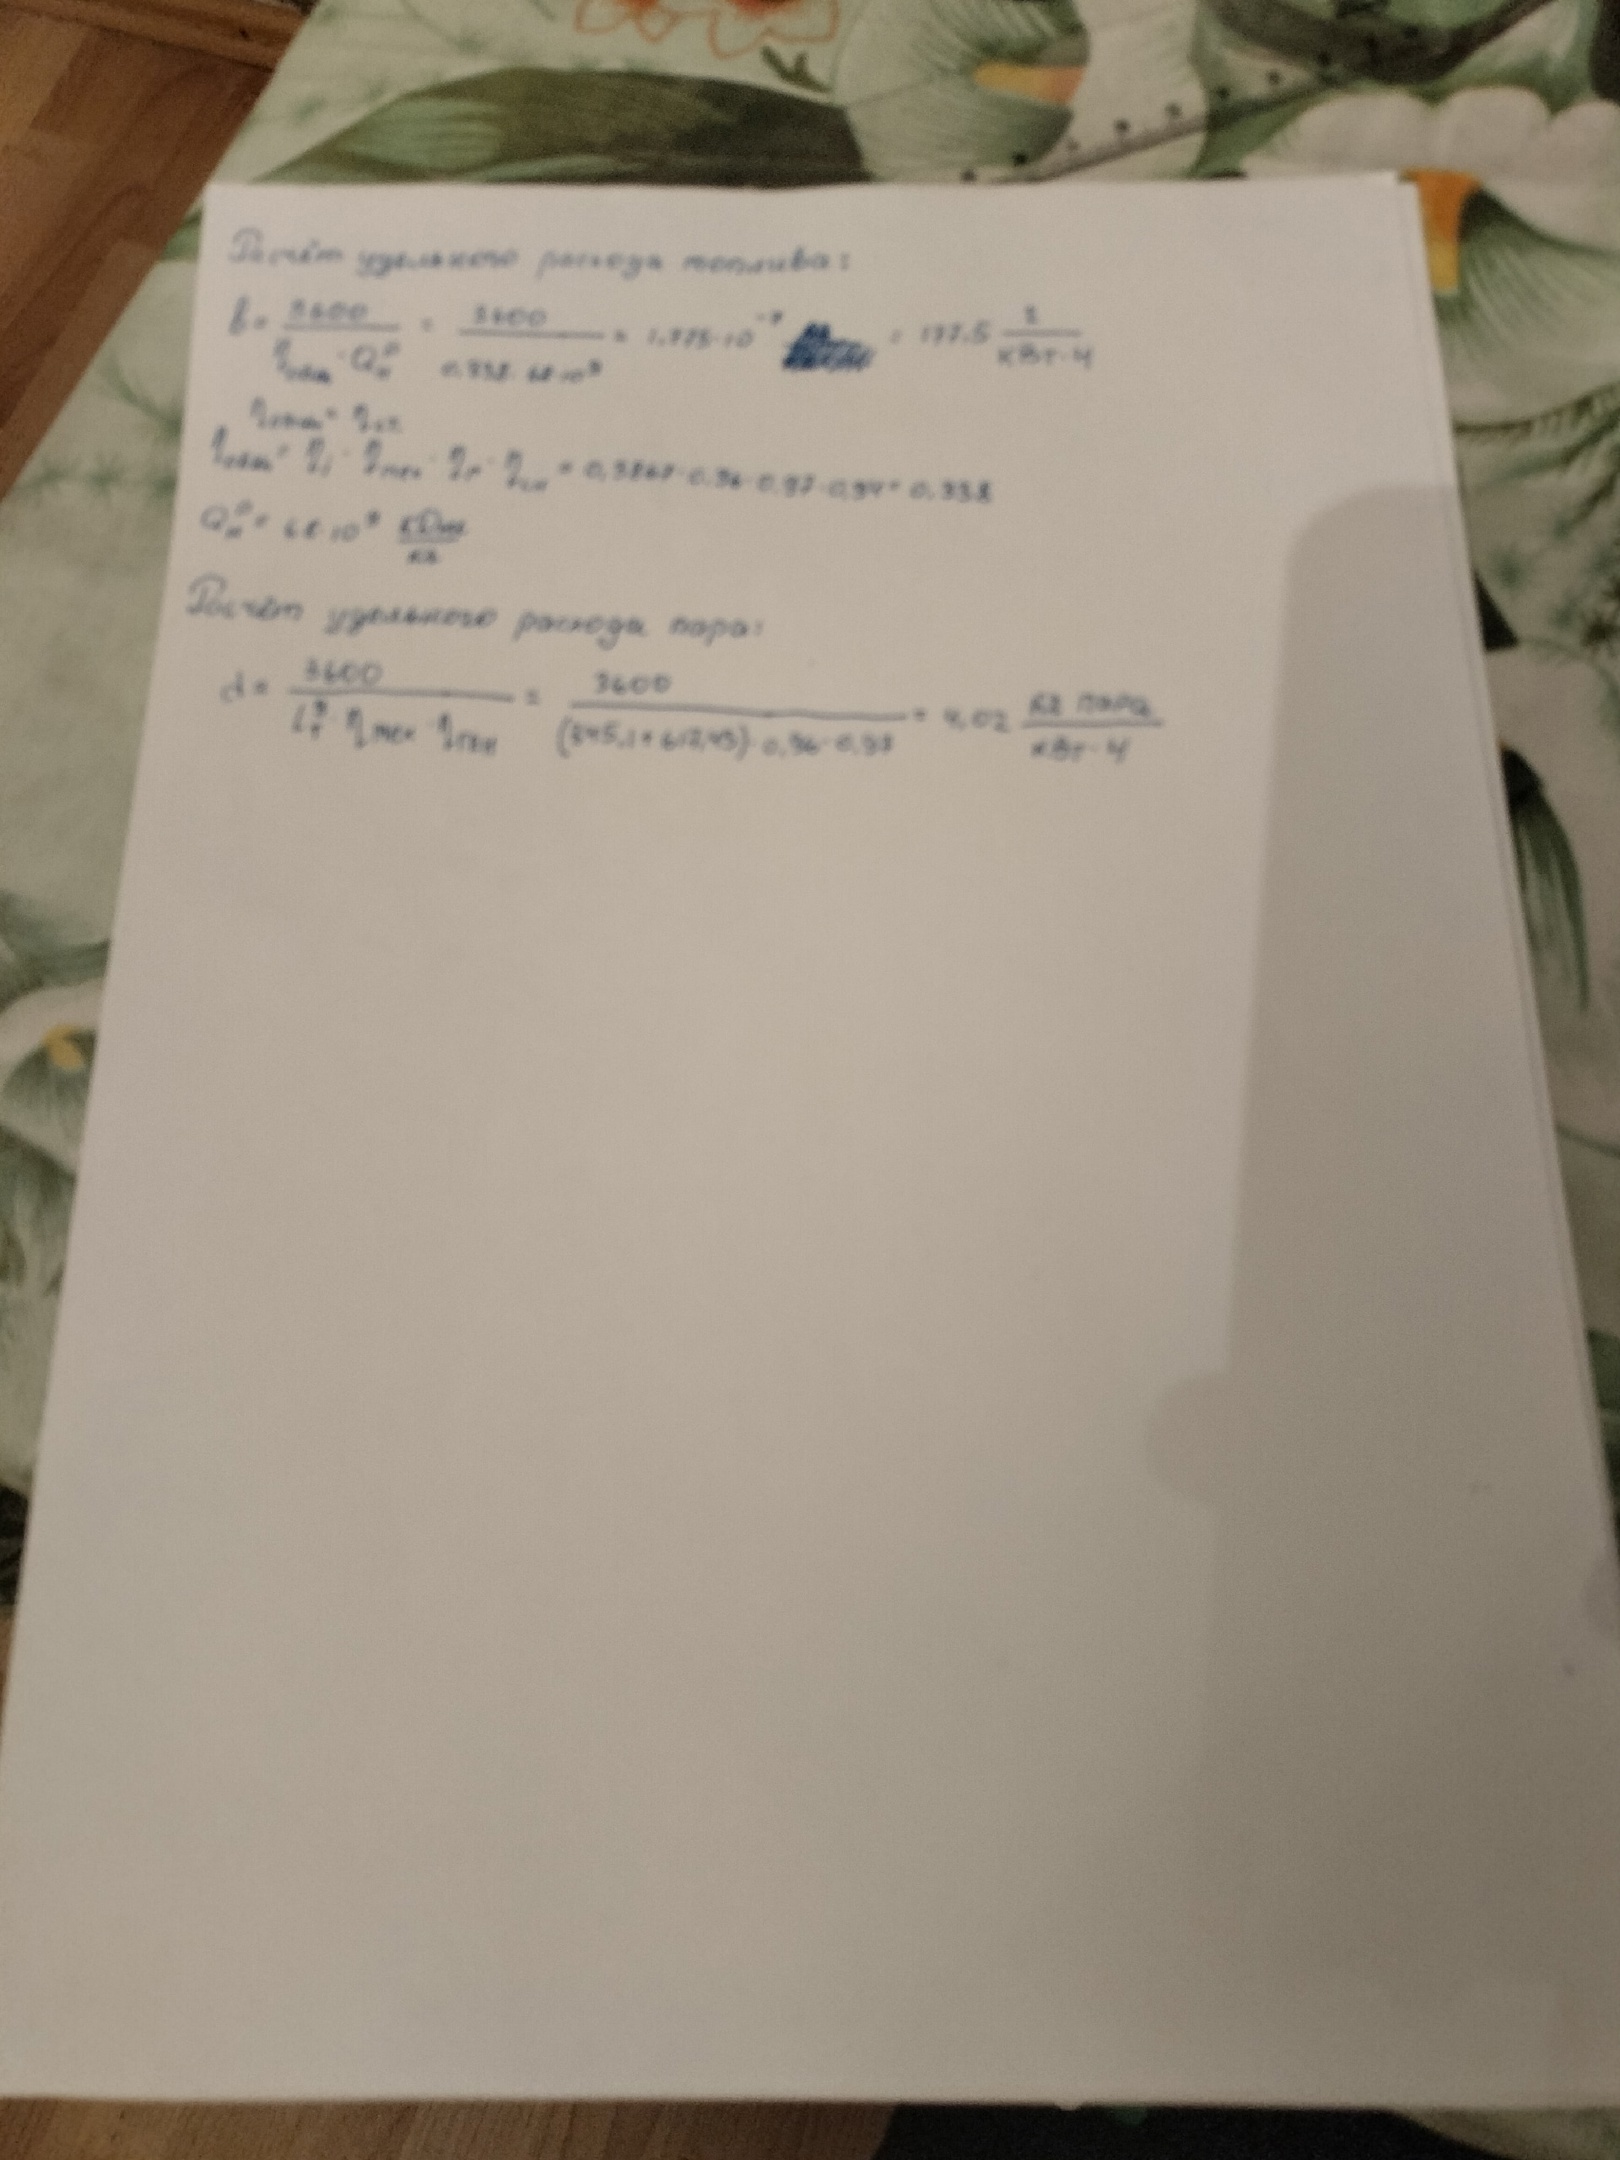 Расчёт удельного расхода топлива:
b = 3600 / (η_общ · Q_н^р) = 3600 / (0,338 · 60·10^9) = 1,775·10^-7 = 177.5 г / кВт·ч
η_общ = η_ст
η_общ = η_i · η_мех · η_г · η_сн = 0,3867·0,96·0,97·0,94 = 0,338
Q_н^р = 60·10^9 кДж / кг
Расчёт удельного расхода пара:
d = 3600 / (· η_мех · η_ген) = 3600 / ((345,1+617,43) · 0,96 · 0,97) = 4,02 кг пара / кВт·ч